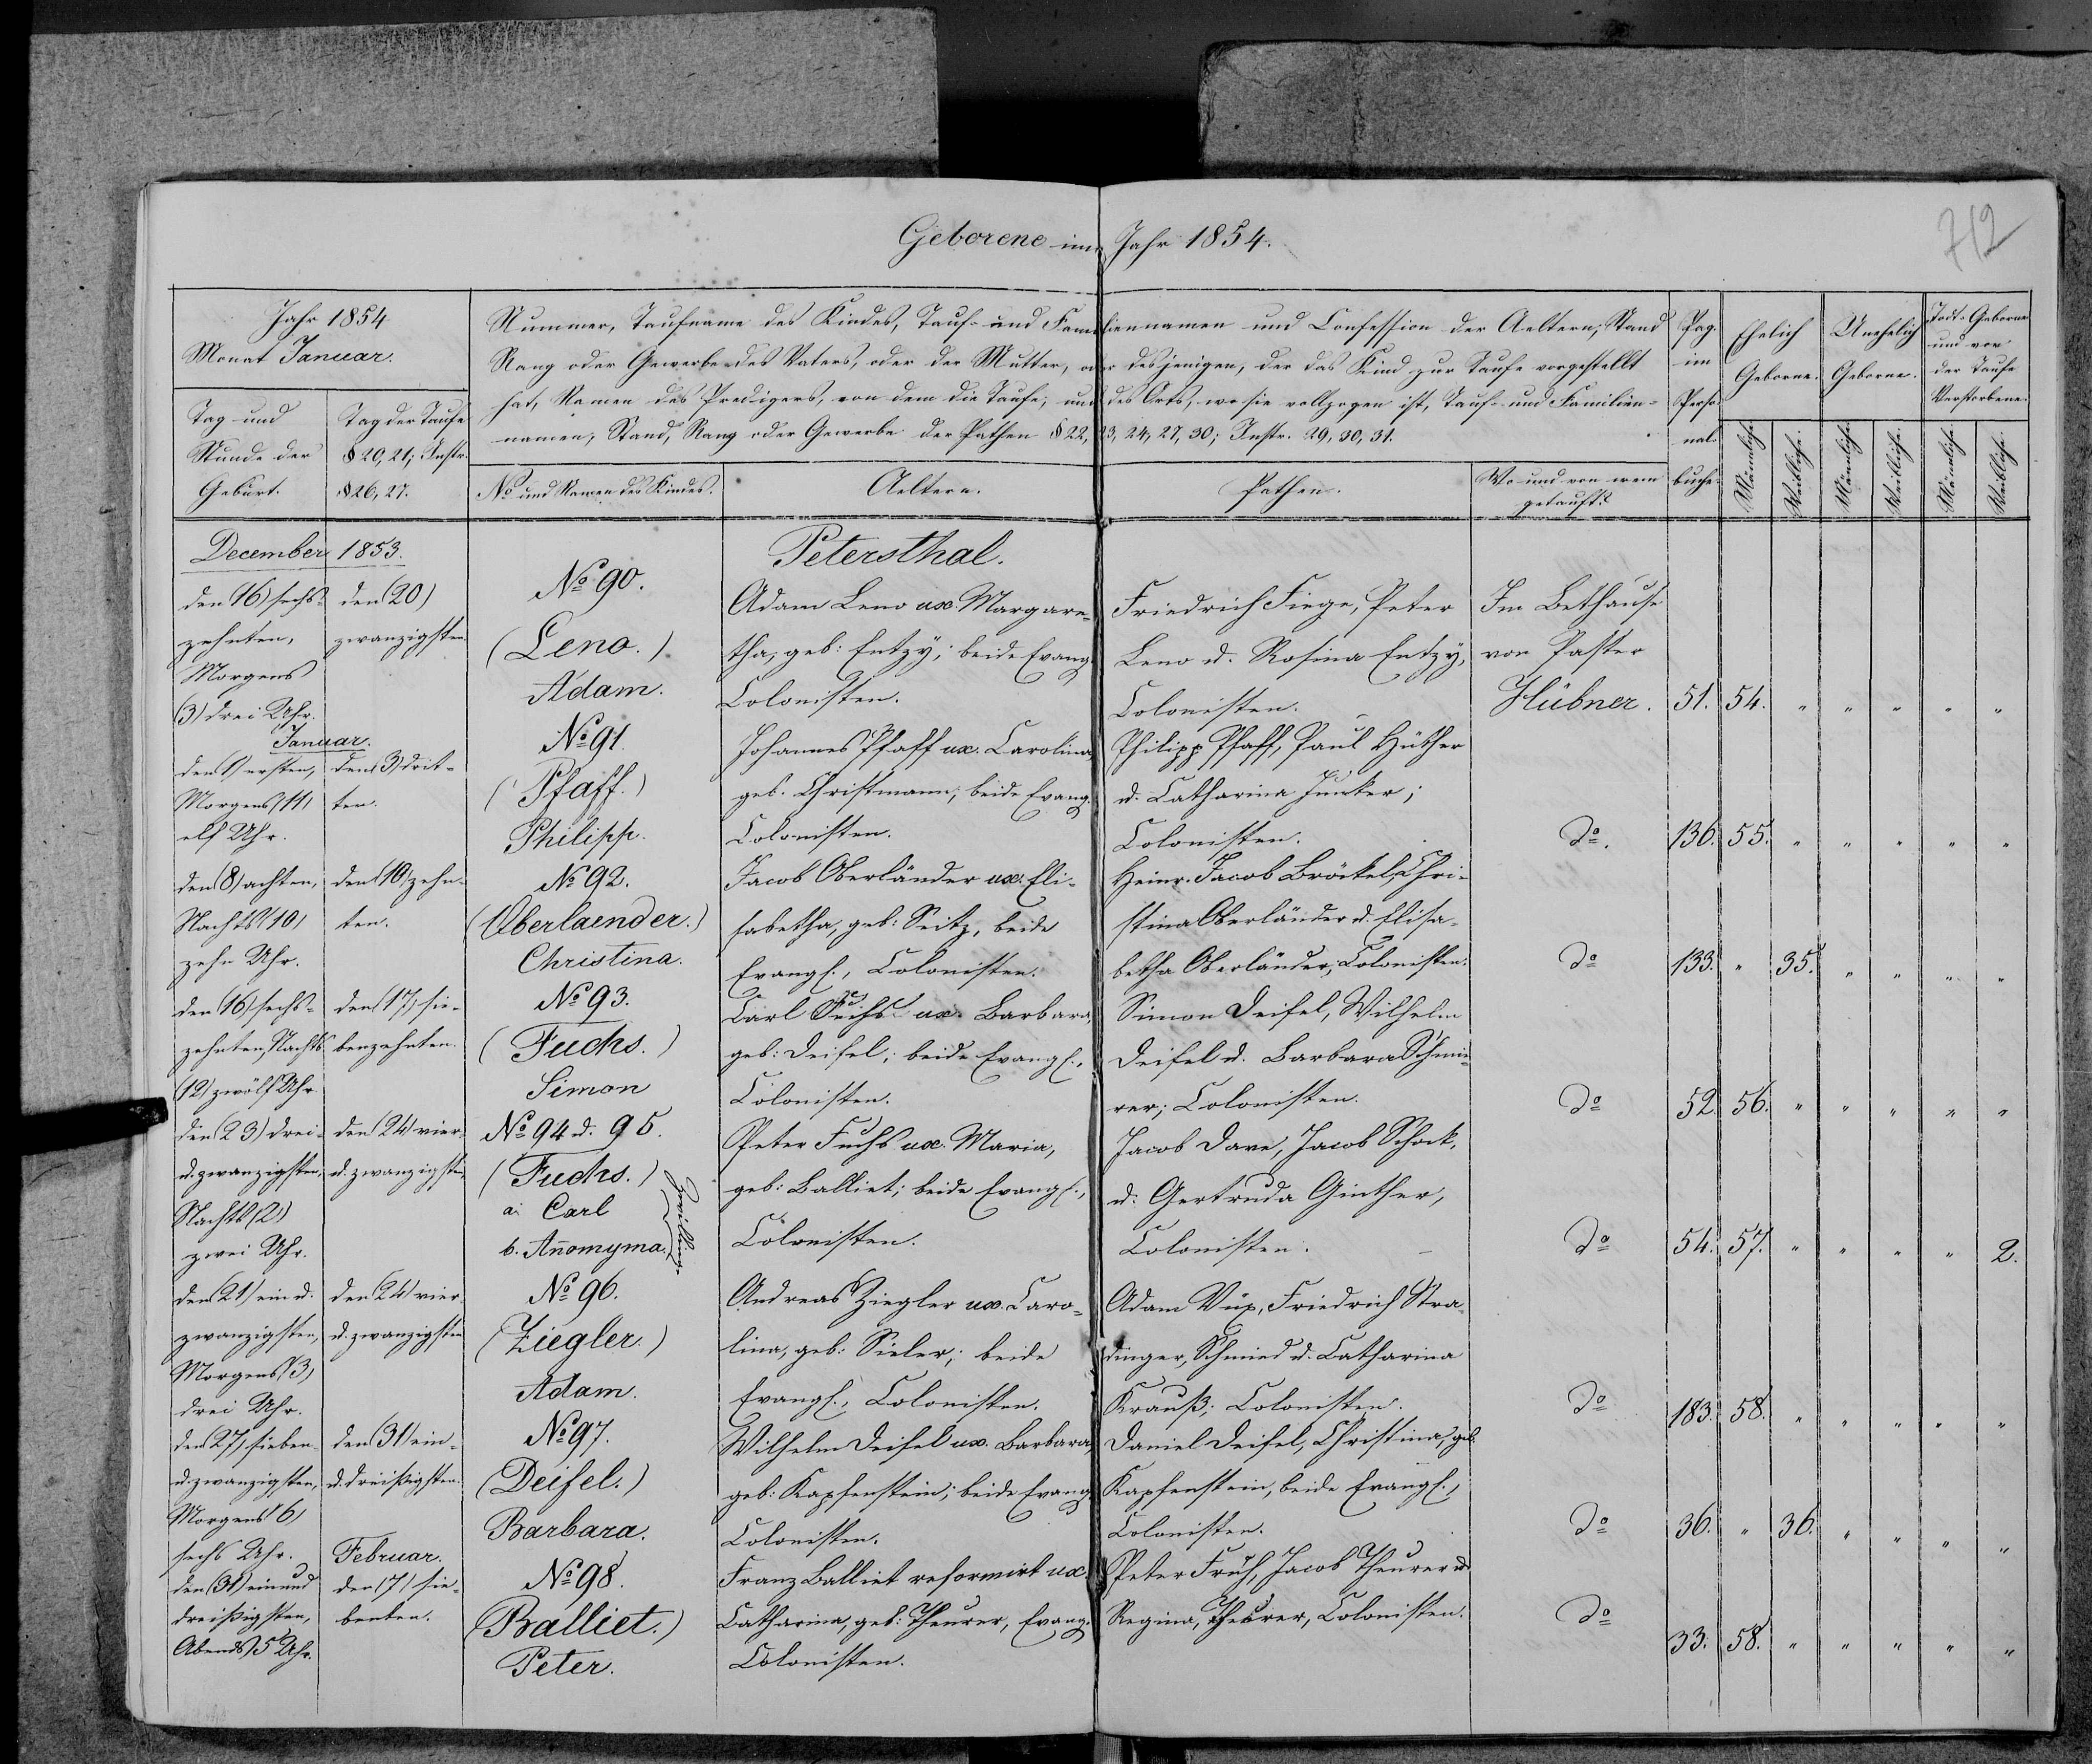 712
Geborene im Jahr 1854.
Jahr 1854
Monat Januar.
Tag und
Stunde der
Geburt.
Tag der Taufe
§ 20, 21; Instr.
§ 26, 27.
Nummer, Taufname des Kindes, Tauf- und Familiennamen und Confession der Aeltern; Stand
Rang oder Gewerbe des Vaters, oder der Mutter, oder desjenigen, der das Kind zur Taufe vorgestellt
hat, Namen des Predigers, von dem die Taufe, und des Orts, wo sie vollzogen ist, Tauf- und Familien-
namen, Stand, Rang oder Gewerbe der Pathen § 22, 23, 24, 27, 30; Instr. 29, 30, 31.
No und Namen des Kindes.
Aeltern.
Pathen.
Wo und von wem
getauft?
Pag.
im
Perso
nal-
buche.
Ehelich
Geborne.
Unehelich
Geborne.
Todt-Geborne
und vor
der Taufe
Verstorbene.
Männliche.
Weibliche.
Männliche.
Weibliche.
Männliche.
Weibliche.
December 1853.
Petersthal.
den (16) sechs-
zehnten,
Morgens
(3) drei Uhr.
den (20)
zwanzigsten
No 90.
(Leno.)
Adam.
Adam Leno ux. Margare-
tha, geb: Entzy; beide Evang.
Colonisten.
Friedrich Fiege, Peter
Leno u. Rosina Entzy,
Colonisten.
Im Bethause
von Pastor
Hübner.
51. 54. " " " " "
Januar.
den (1) ersten,
Morgens (11)
elf Uhr.
den (3) drit-
ten.
No 91.
(Pfaff.)
Philipp.
Johannes Pfaff ux. Carolina,
geb. Christmann; beide Evang.
Colonisten.
Philipp Pfaff, Paul Hüther
u. Catharina Junker;
Colonisten.
do.
136. 55. " " " " "
den (8) achten,
Nachts (10)
zehn Uhr.
den (10) zehn-
ten.
No 92.
(Oberlaender.)
Christina.
Jacob Oberländer ux. Eli-
sabetha, geb: Seitz, beide
Evangl., Colonisten.
Heinr. Jacob Bröckel, Chri-
stina Oberländer u. Elisa-
betha Oberländer, Colonisten.
do
133. " 35. " " " "
den (16) sechs-
zehnten, Nachts
(12) zwölf Uhr
den (17) sie-
benzehnten.
No 93.
(Fuchs.)
Simon
Carl Fuchs ux. Barbara,
geb: Deifel; beide Evangl.,
Colonisten.
Simon Deifel, Wilhelm
Deifel u. Barbara Schmie-
rer; Colonisten.
do
52. 56. " " " " "
den (23) drei-
u. zwanzigsten,
Nachts (2)
zwei Uhr.
den (24) vier-
u. zwanzigsten
No 94 u. 95.
(Fuchs.)
a. Carl
b. Anomyma.
Zwillinge
Peter Fuchs ux. Maria,
geb: Balliet; beide Evangl.,
Colonisten.
Jacob Dave, Jacob Schock,
u. Gertruda Ginther,
Colonisten.
do
54. 57. " " " " 2.
den (21) ein u.
zwanzigsten,
Morgens (3)
drei Uhr.
den (24) vier-
u. zwanzigsten
No 96.
(Ziegler.)
Adam.
Andreas Ziegler ux. Caro-
lina, geb: Sieler; beide
Evangl., Colonisten.
Adam Vüx, Friedrich Stra-
dinger, Schmied u. Catharina
Krauß; Colonisten.
do
183. 58. " " " " "
den (27) sieben-
u. zwanzigsten,
Morgens (6)
sechs Uhr.
den (31) ein-
u. dreißigsten.
No 97.
(Deifel.)
Barbara.
Wilhelm Deifel ux. Barbara,
geb: Kapfenstein; beide Evang.
Colonisten.
Daniel Deifel, Christina, geb.
Kapfenstein, beide Evangl.,
Colonisten.
do
36. " 36. " " " "
den (31) ein und
dreißigsten,
Abends 5 Uhr.
Februar.
den (7) sie-
benten.
No 98.
(Balliet.)
Peter.
Franz Balliet reformirt ux.
Catharina, geb: Theurer, Evang.
Colonisten.
Peter Früh, Jacob Theurer u.
Regina, Theurer, Colonisten.
do
33. 58. " " " " "